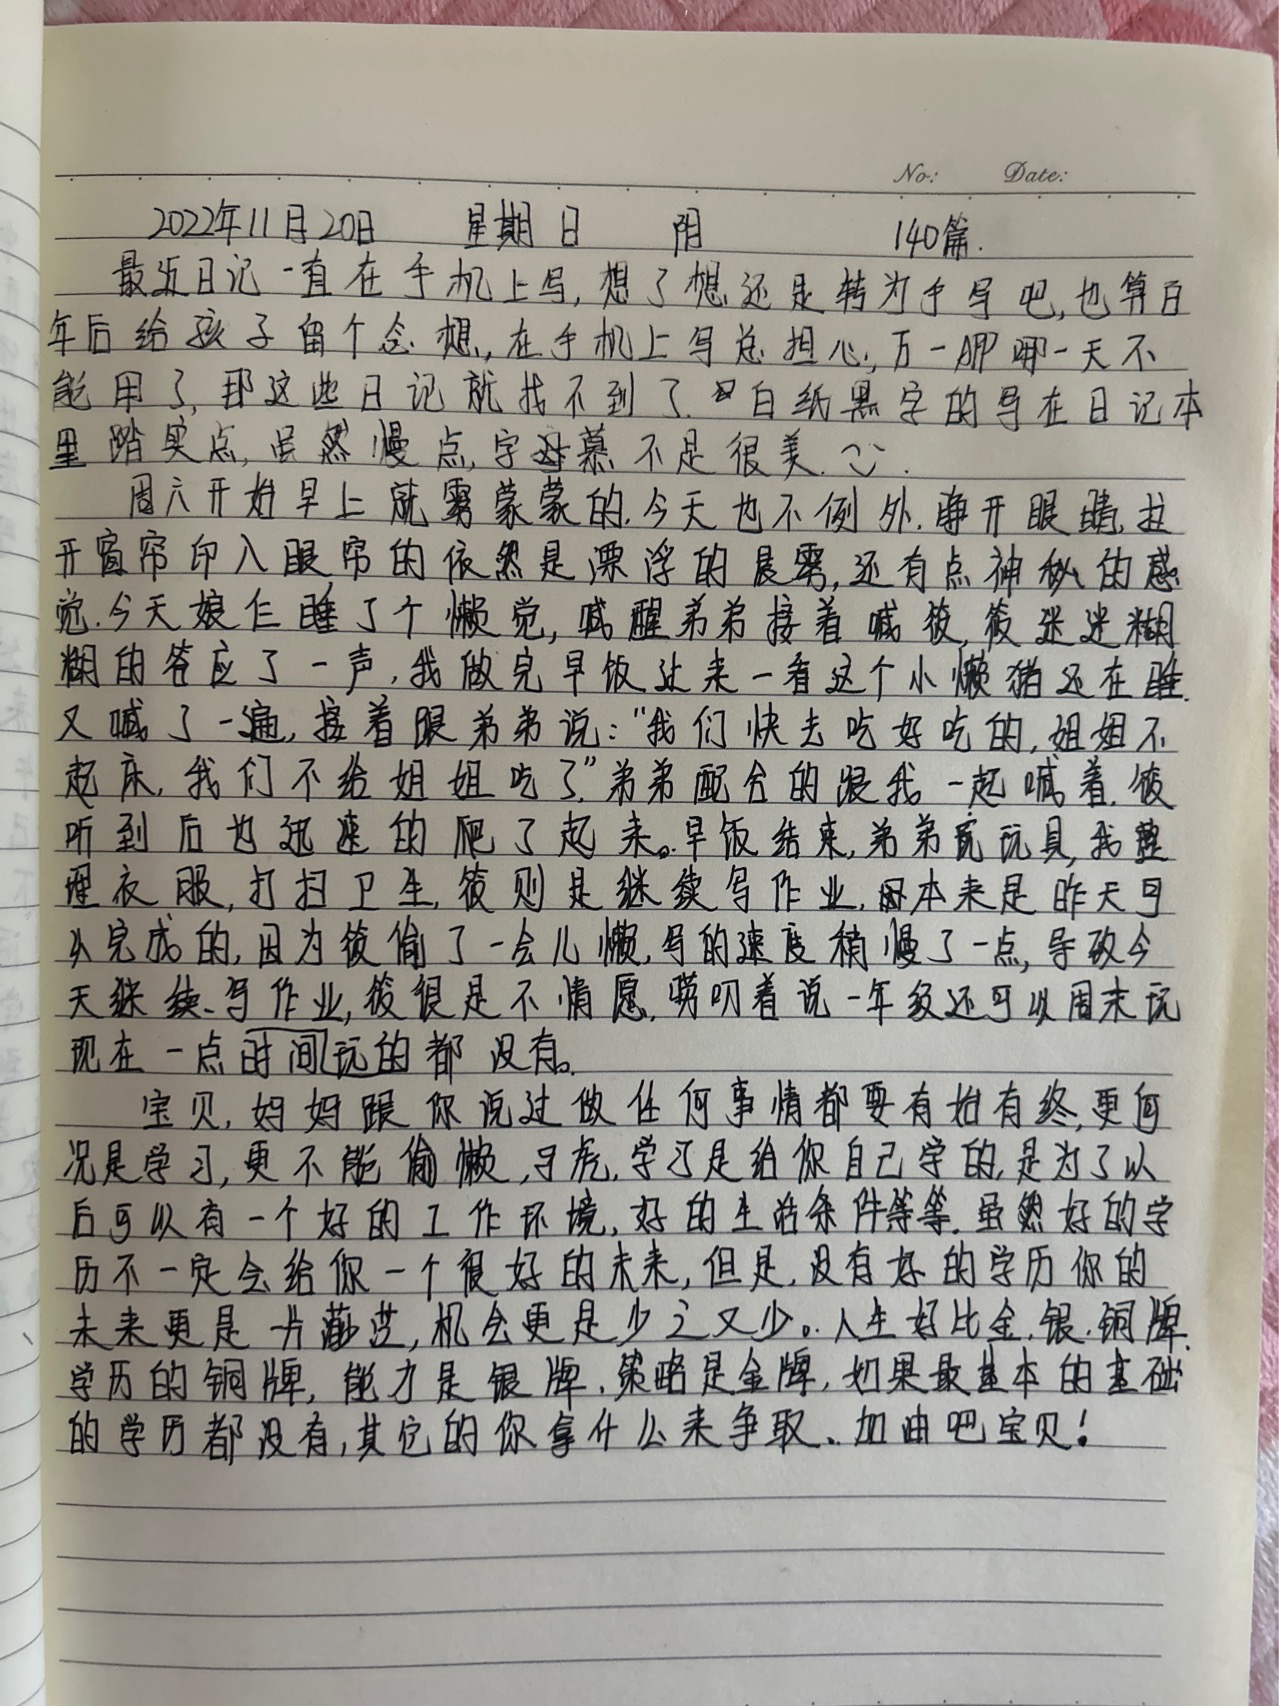 No: Date:
2022年11月20日 星期日 阴 140篇.
最近日记一直在手机上写,想了想还是转为手写吧,也算百
年后给孩子留个念想,在手机上写总担心,万一APP哪一天不
能用了,那这些日记就找不到了.白纸黑字的写在日记本
里踏实点,虽然慢点,字 慕不是很美.
周六开始早上就雾蒙蒙的.今天也不例外.睁开眼睛,拉
开窗帘印入眼帘的依然是漂浮的晨雾,还有点神秘的感
觉.今天娘仨睡了个懒觉,喊醒弟弟接着喊筱,筱迷迷糊
糊的答应了一声,我做完早饭过来一看这个小懒猪还在睡.
又喊了一遍,接着跟弟弟说:“我们快去吃好吃的,姐姐不
起床,我们不给姐姐吃了”弟弟配合的跟我一起喊着.筱
听到后也迅速的爬了起来。早饭结束,弟弟玩玩具,我整
理衣服,打扫卫生,筱则是继续写作业.本来是昨天可
以完成的,因为筱偷了一会儿懒,写的速度稍慢了一点,导致今
天继续写作业,筱很是不情愿,唠叨着说一年级还可以周末玩
现在一点时间玩的都没有。
宝贝,妈妈跟你说过做任何事情都要有始有终,更何
况是学习,更不能偷懒,马虎,学习是给你自己学的,是为了以
后可以有一个好的工作环境,好的生活条件等等.虽然好的学
历不一定会给你一个很好的未来,但是,没有好的学历你的
未来更是一片渺茫,机会更是少之又少。人生好比金.银.铜牌.
学历的铜牌,能力是银牌.策略是金牌,如果最基本的基础
的学历都没有,其它的你拿什么来争取.加油吧宝贝!